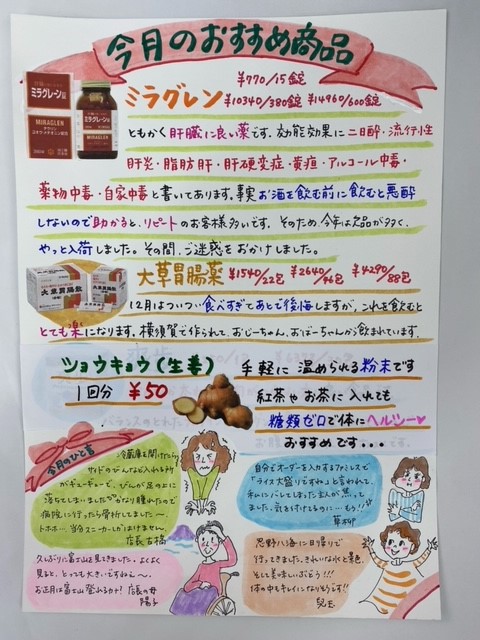 今月のおすすめ商品
ミラグレン
¥770/15錠
¥10340/380錠 ¥14960/600錠
ミラグレーン錠
MIRAGLEN
ともかく肝臓に良い薬です。効能効果に二日酔・流行性
肝炎・脂肪肝・肝硬変症・黄疸・アルコール中毒・
薬物中毒・自家中毒と書いてあります。事実お酒を飲む前に飲むと悪酔
しないので助かると、リピートのお客様多いです。そのため今年は欠品が多く、
やっと入荷しました。その間、ご迷惑をおかけしました。
大草胃腸薬 ¥1540/22包 ¥2640/46包 ¥4290/88包
大草胃腸散
12月はついつい食べすぎてあとで後悔しますが、これを飲むと
とても楽になります。横須賀で作られて、おじーちゃん、おばーちゃんから飲まれています。
ショウキョウ(生姜)
1回分 ¥50
手軽に温められる粉末です
紅茶やお茶に入れても
糖類ゼロで体にヘルシー♡
おすすめです...
今月のひと言
冷蔵庫を開けたら、
サイドのびんなど入れる所
がギューギューで、びんが足の上に
落ちてしまいました。かなり腫れたので
病院に行ったら骨折してました〜
トホホ...当分スニーカーしかはけません。
店長古橋
自分でオーダーを入力するファミレスで
"ライス大盛りですねっ"と言われて、
私にバレてしまった主人が焦って
ました。気を付けてるのに…もう!!
草柳
久しぶりに富士山を見てきました。よくよく
見ると、とっても大きいですねぇ〜。
お正月は富士山登れるかナ?
店長の母
陽子
忍野八海に日帰りで
行ってきました。きれいな水と景色、
そして美味しいぶどう!!!
体の中もキレイになりそうです!!
児玉